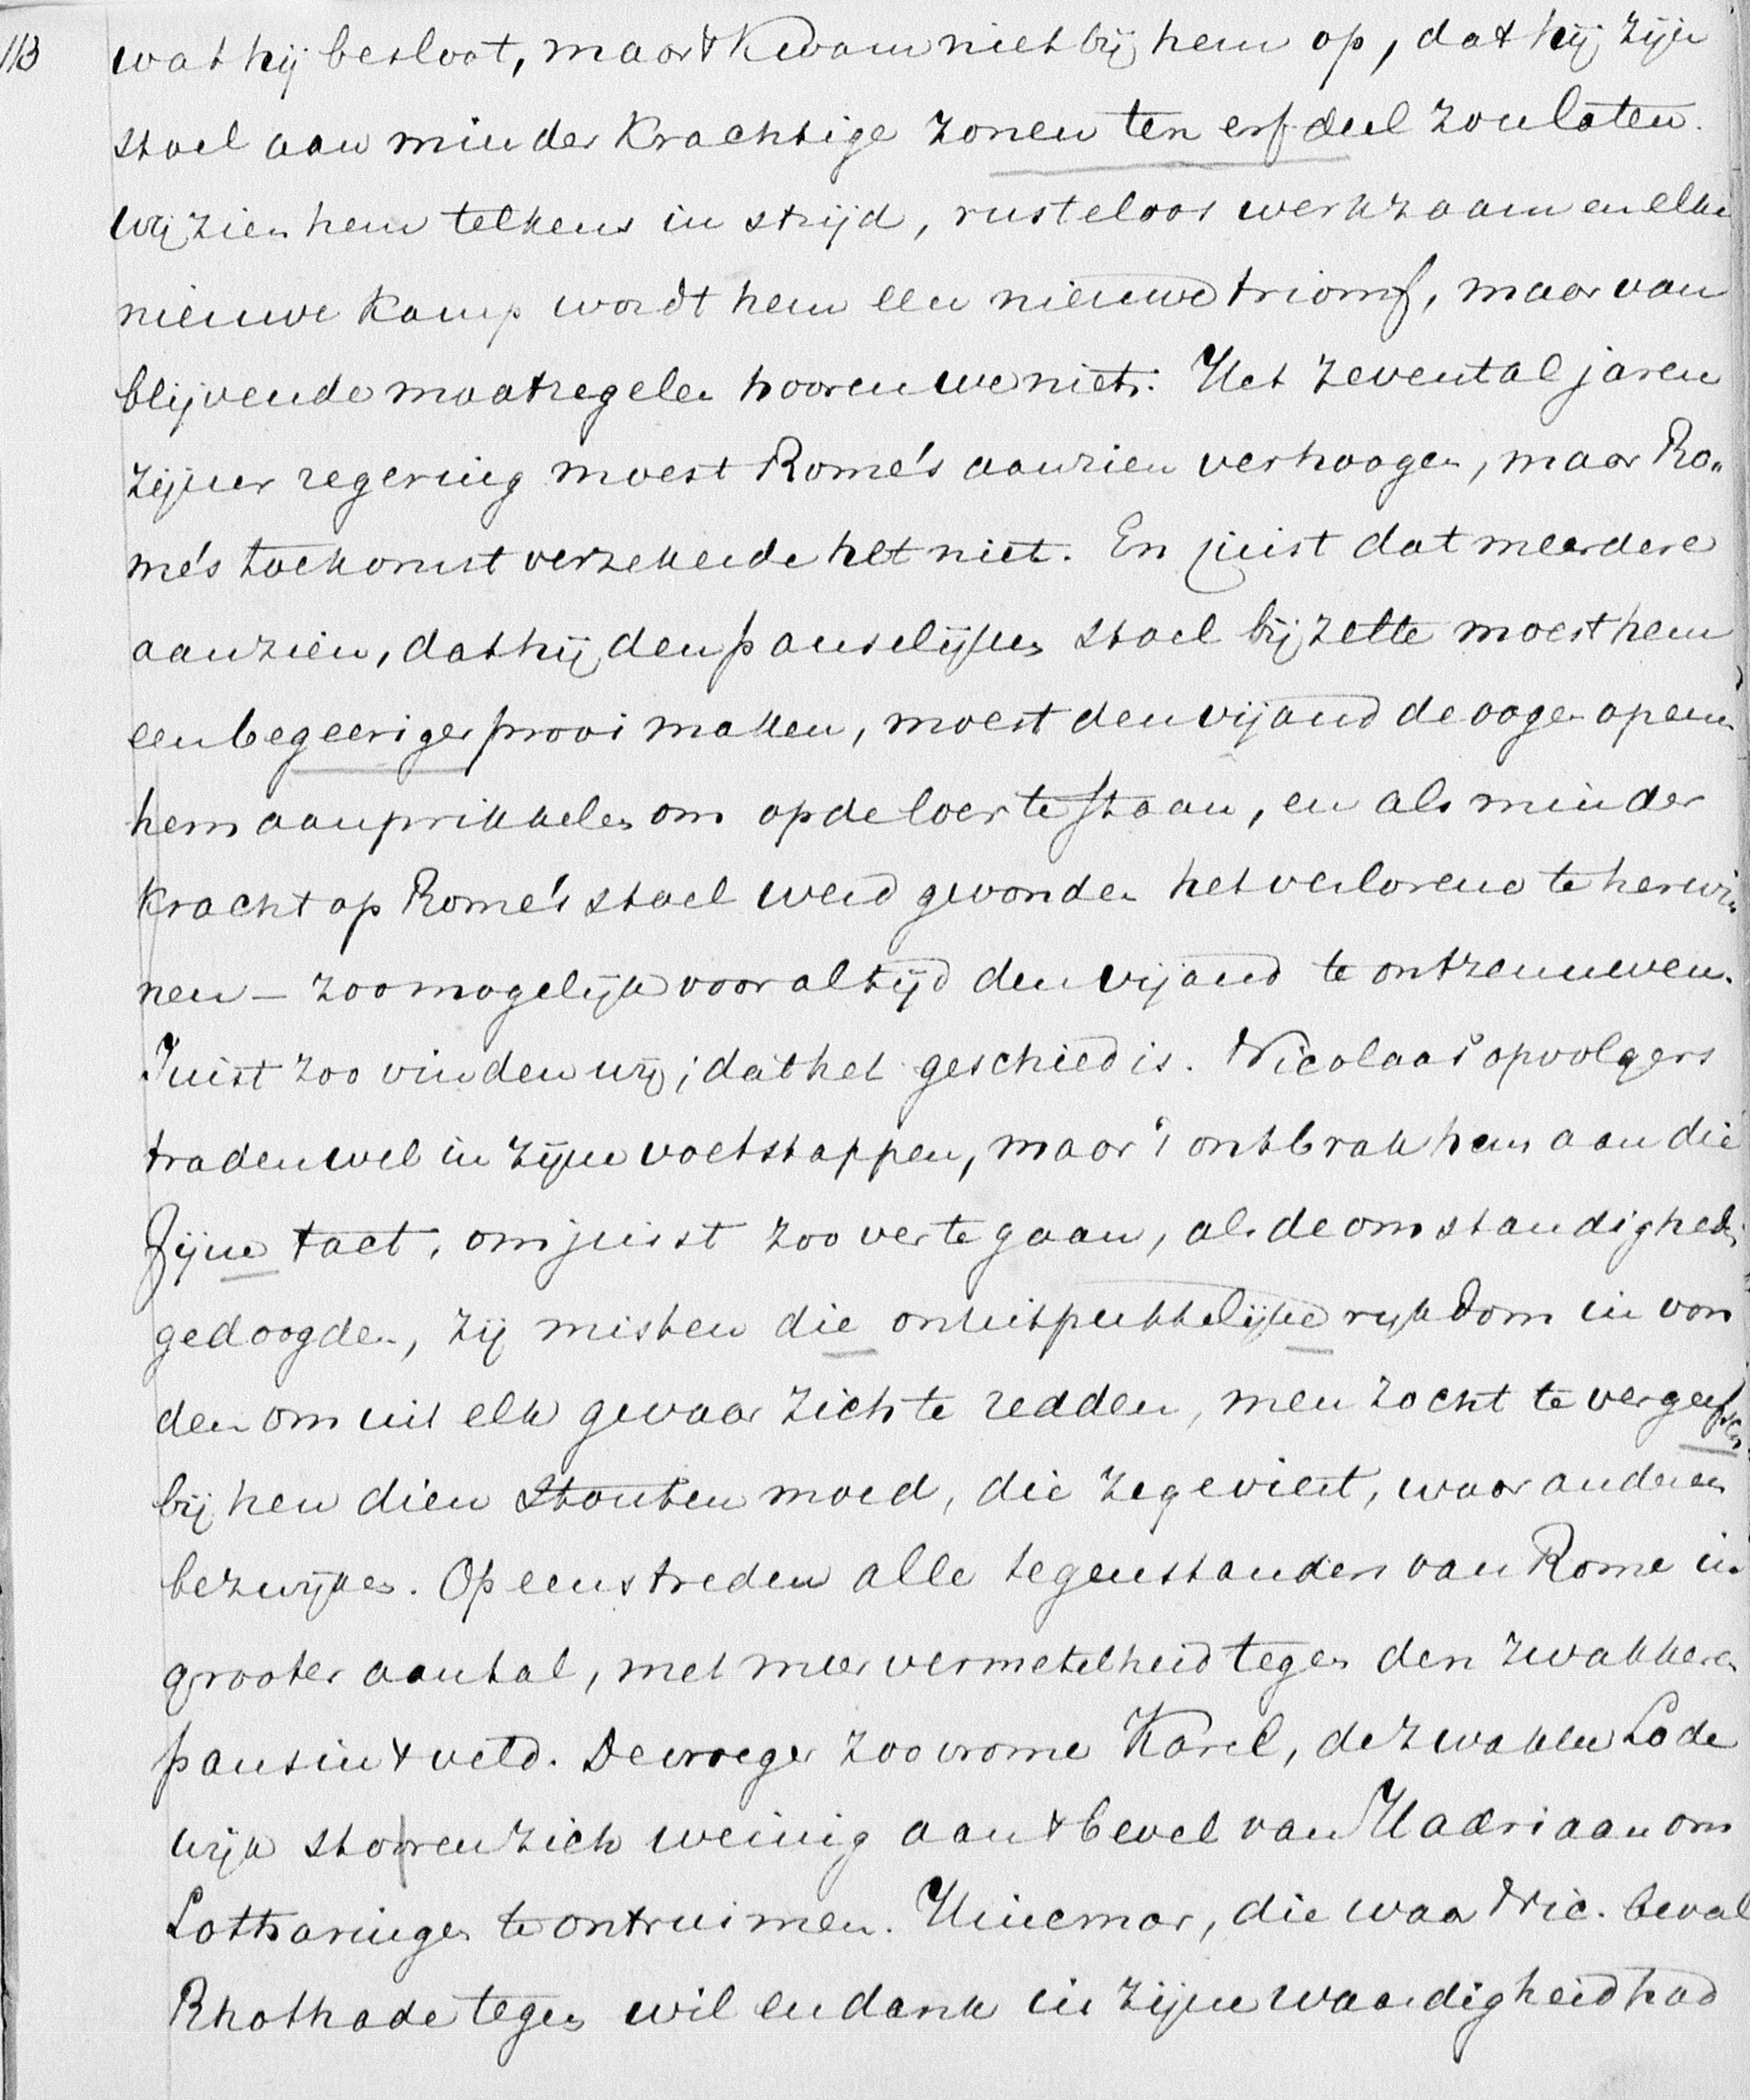 113
wat hij besloot, maar 't kwam niet bij hem op, dat hij zijn
stoel aan minder krachtige zonen ten erfdeel zou laten.
wij zien hem telkens in strijd, rusteloos werkzaam en elke
nieuwe kamp wordt hem een nieuwe triomf, maar van
blijvende maatregelen hooren we niets. Het zevental jaren
zijner regering moest Rome's aanzien verhoogen, maar Ro„
me's toekomst verzekerde het niet. En juist dat meerdere
aanzien, dat hij den pauselijken stoel bijzette moest hem
een begeeriger prooi maken, moest den vijand de oogen openen
hem aanprikkelen om op de loer te staan, en als minder
kracht op Rome's stoel werd gevonden het verlorene te herwin
nen — zoo mogelijk voor altijd den vijand te ontzenuwen.
Juist zoo vinden wij, dat het geschied is. Nicolaas' opvolgers
traden wel in zijne voetstappen, maar 't ontbrak hen aan die
fijne tact, om juist zoo ver te gaan, als de omstandigheden
gedoogden, zij misten die onuitputtelijke rijkdom in von
den om uit elk gevaar zich te redden, men zocht te vergeefsch
bij hen dien stouten moed, die zegeviert, waar anderen
bezwijken. Op eens treden alle tegenstanders van Rome in
grooter aantal, met meer vermetelheid tegen den zwakkeren
paus in 't veld. De vroeger zoo vrome Karel, de zwakke Lode
wijk storen zich weinig aan 't bevel van Hadriaan om
Lotharingen te ontruimen. Hincmar, die waar Nic. beval
Rhothade tegen wil en dank in zijne waardigheid had